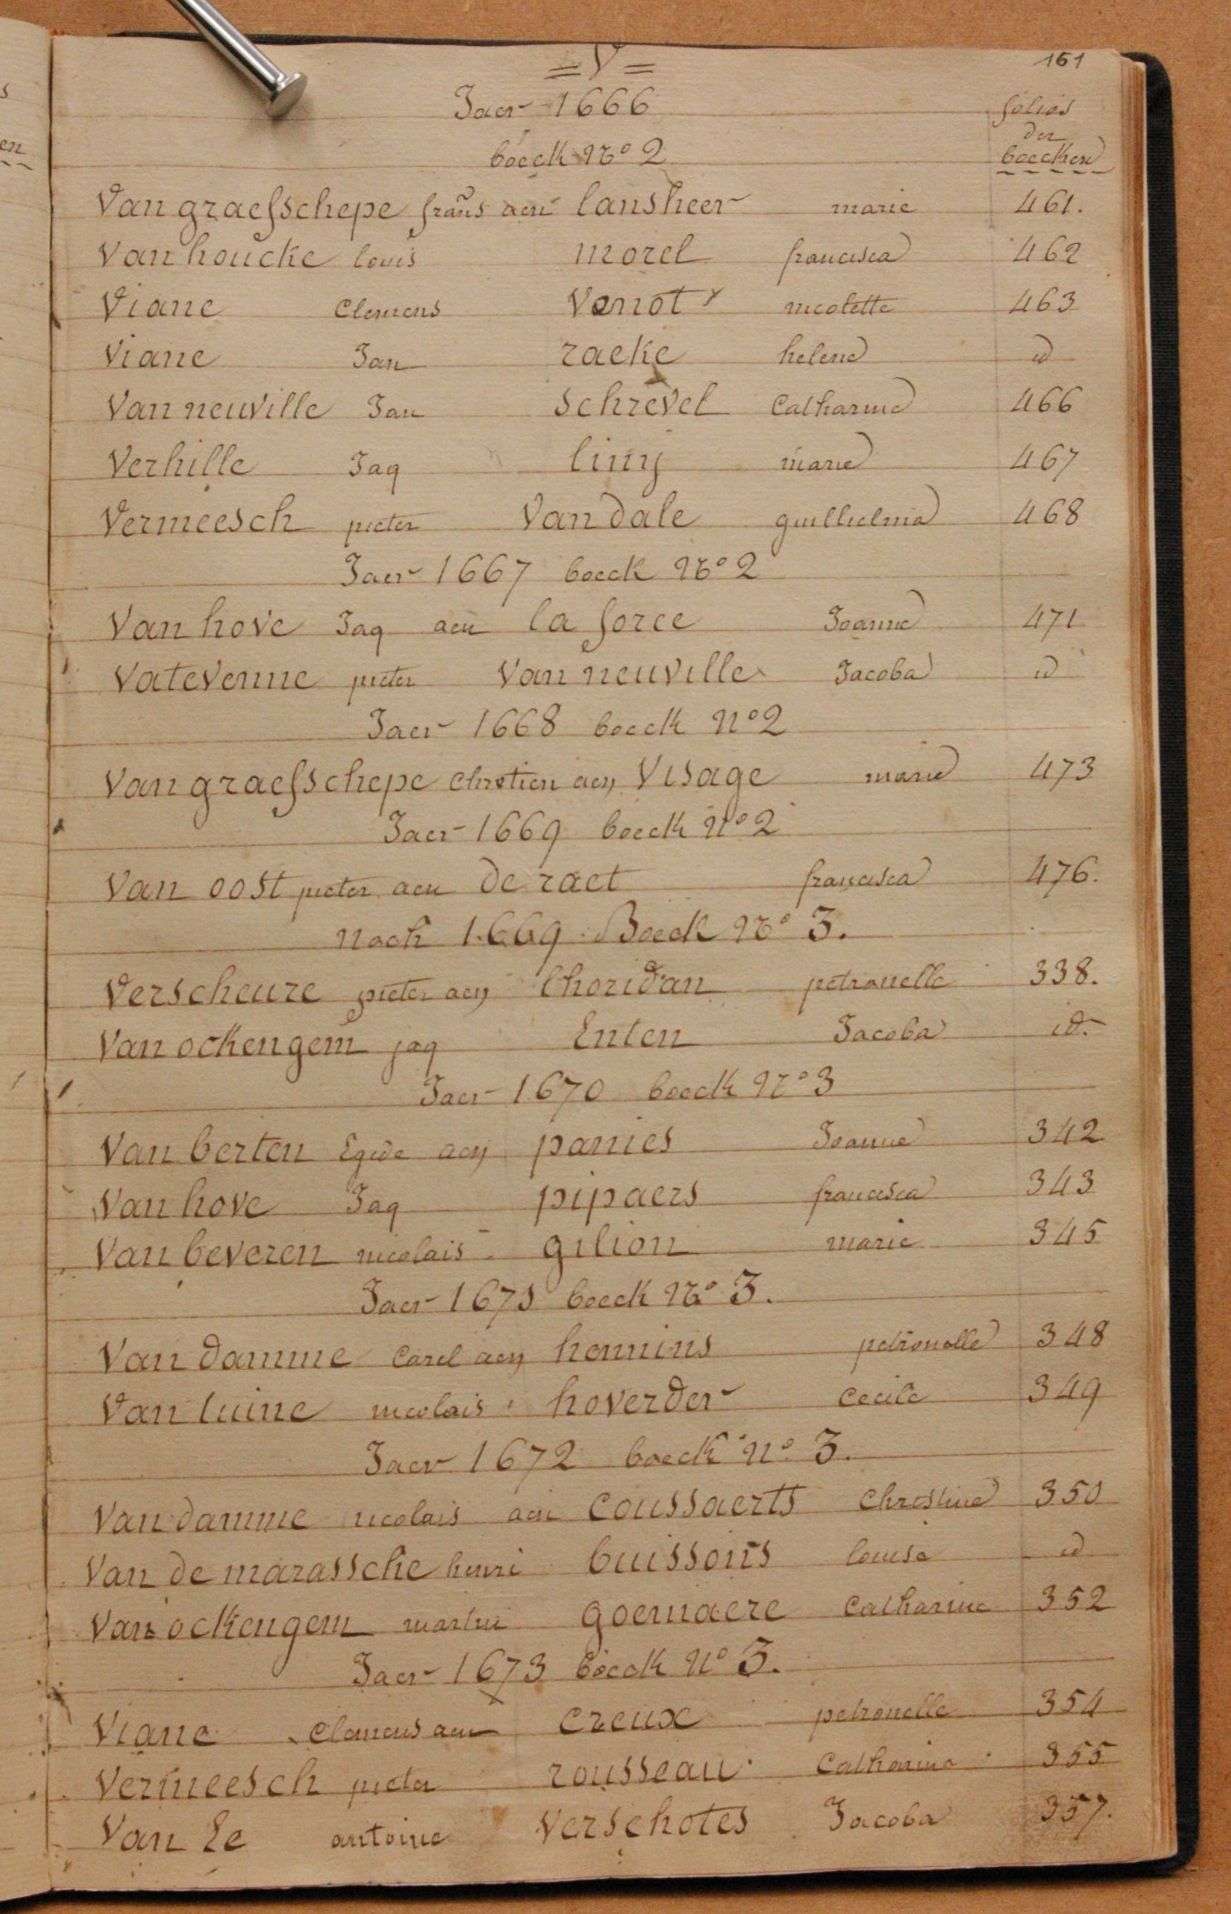 = V = 161
Jaer 1666 folios
boeck No 2 der boecken
Van graefsschepe frans aen lansheer marie 461.
Van houcke louis morel francisca 462
Viane Clemens Venot nicolette 463
Viane Jan racke helene id
Van neuville Jan schrevel Catharine 466
Verhille Jaq limy marie 467
Vermeesch pieter Van dale guillielmia 468
Jaer 1667 boeck No 2
Van hove Jaq aen la force Joanne 471
Vatevenne pieter Van neuville Jacoba id
Jaer 1668 boeck No 2
Van graefsschepe Chretien aen Visage marie 473
Jaer 1669 boeck No 2
Van oost pieter aen de raet francisca 476.
noch 1669 Boeck No 3.
Verscheure pieter aen thoridan petronelle 338.
Van ockengem jaq Enten Jacoba id.
Jaer 1670 boeck No 3
Van berten Egide aen panies Joanne 342
Van hove Jaq pipaers francisca 343
Van beveren nicolais gilion marie 345
Jaer 1671 boeck No 3.
Van damme Carel aen hennins petronelle 348
Van luine nicolais hoverder Cecile 349
Jaer 1672 boeck No 3.
Van damme nicolais aen Coussaerts Christine 350
Van de marassche henri buissons louise id
Van ockengem martin goemaere Catharine 352
Jaer 1673 boeck No 3.
Viane Clemens aen Creux petronelle 354
Vermeesch pieter rousseau Catharina 355
Van Ee antoine Verschotes Jacoba 357.